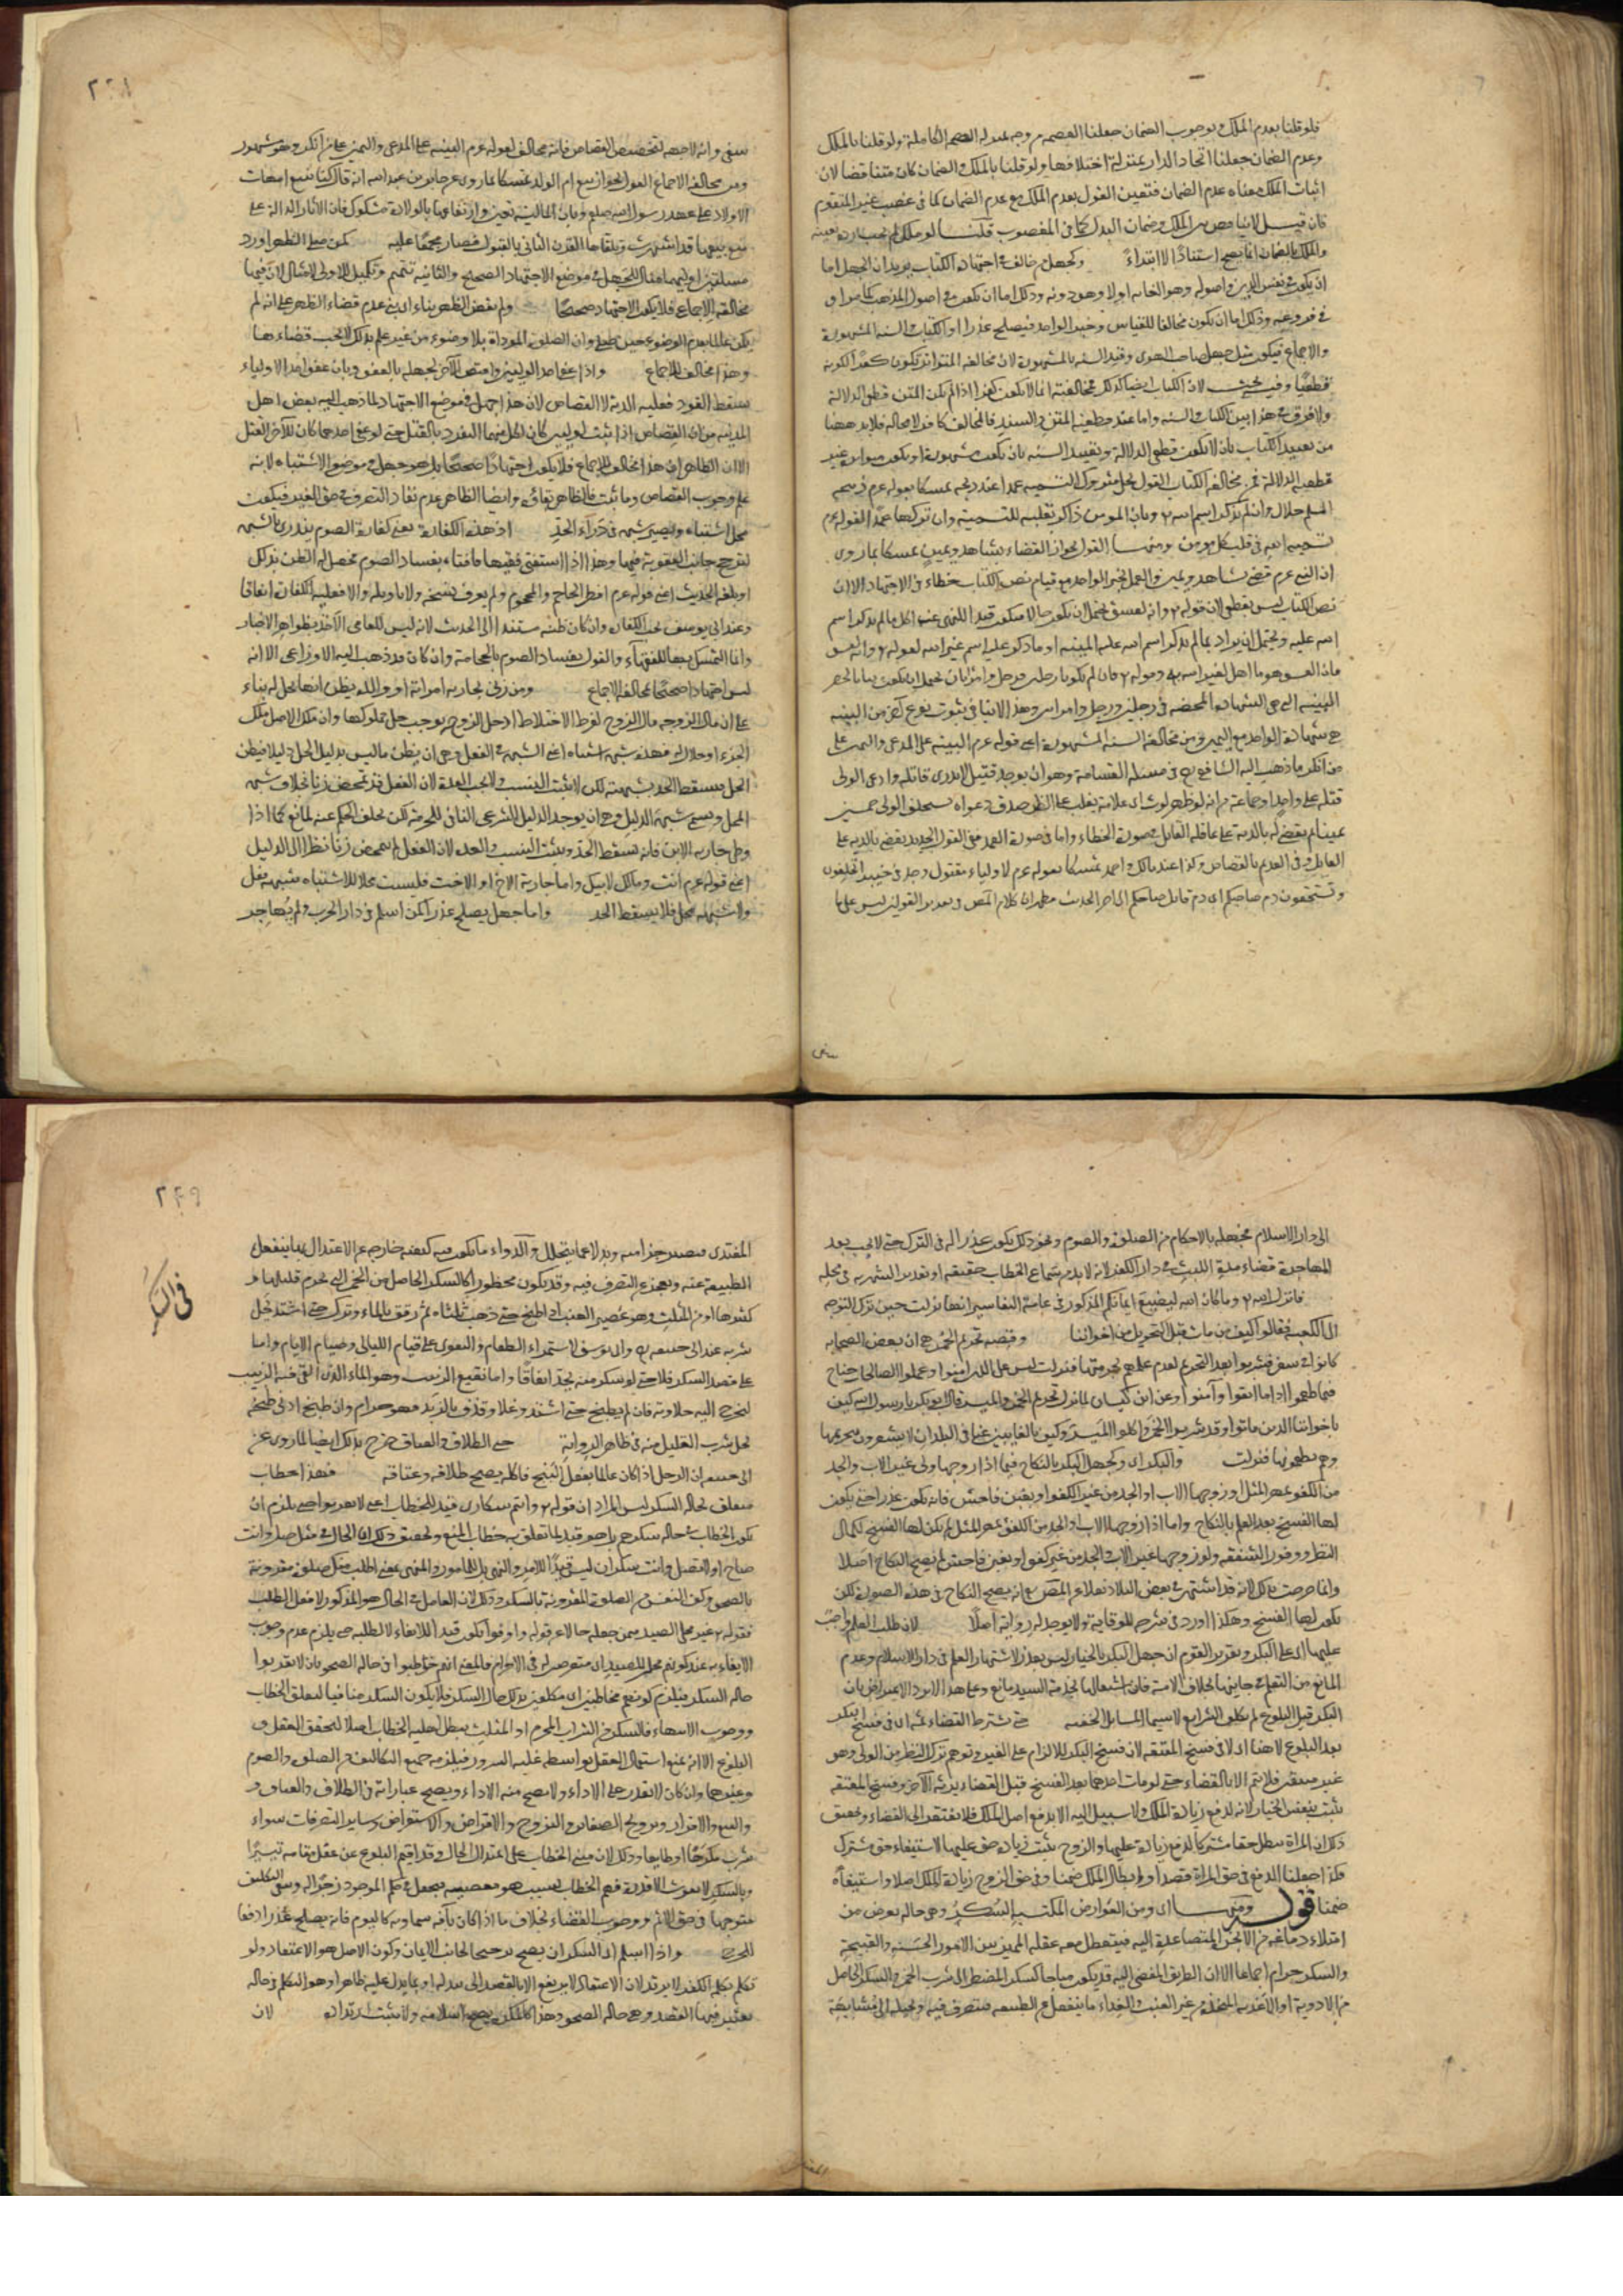 فلو قلنا بعدم الملك وبوجوب الضمان جعلنا العصمة من وجه بمنزلة العصمة الكاملة ولو قلنا بالملك
وعدم الضمان جعلنا اتحاد الدار بمنزلة اختلافها ولو قلنا بالملك والضمان كان متناقضا لان
اثبات الملك معناه عدم الضمان فتعين القول بعدم الملك مع عدم الضمان كما في غصب غير المتقوم
فان قيل لا تنافي بين الملك وضمان البدل كما في المغصوب قلنا لو ملك لم يجب رده بعينه
والملك بالضمان انما يصح استنادا لا ابتداء وكجهل من خالف في اجتهاده الكتاب يريد ان الجهل اما
ان يكون في نفس الدين واصوله وهو الغاية اولا وهو دونه وذلك اما ان يكون في اصول المذهب كما مر او
في فروعه وذلك اما ان يكون مخالفا للقياس وخبر الواحد فيصلح عذرا او للكتاب والسنة المشهورة
والاجماع فيكون مثل جهل صاحب الهوى وقيد السنة بالمشهورة لان مخالفة المتواتر يكون كفرا لكونه
قطعيا وفيه بحث لان الكتاب ايضا كذلك فمخالفته انما لا يكون كفرا اذا لم يكن المتن قطعي الدلالة
ولا فرق في هذا بين الكتاب والسنة واما عند قطعية المتن والسند فالمخالف كافر لا محالة فلا بد ههنا
من تقييد الكتاب بان لا تكون قطعي الدلالة وتقييد السنة بان تكون مشهورة او تكون متواترة غير
قطعية الدلالة فمن مخالفة الكتاب القول بحل متروك التسمية عمدا عند ذبحه تمسكا بقوله عم ذبيحة
المسلم حلال وان لم يذكر اسم الله وبان المؤمن ذاكر بقلبه للتسمية وان تركها عمدا لقوله عم
تسمية الله في قلب كل مؤمن ومنها القول بجواز القضاء بشاهد ويمين تمسكا بما روى
ان النبي عم قضى بشاهد ويمين والعمل بخبر الواحد مع قيام نص الكتاب خطاء في الاجتهاد الا ان
نص الكتاب ليس بقطعي لان قوله وانه لفسق يحتمل ان يكون حالا فيكون قيدا للنهي عن اكل ما لم يذكر اسم
الله عليه ويحتمل ان يراد بما لم يذكر اسم الله عليه الميتة او ما ذكر عليه اسم غير الله لقوله وانه لفسق
فان الفسق هو ما اهل لغير الله به وقوله فان لم يكونا رجلين فرجل وامرأتان يحتمل ان يكون بيانا لحصر
البينة التي هي الشهادة المحضة في رجلين ورجل وامرأتين وهذا لا ينافي ثبوت نوع آخر من البينة
هي شهادة الواحد مع اليمين ومن مخالفة السنة المشهورة اعني قوله عم البينة على المدعي واليمين على
من انكر ما ذهب اليه الشافعي في مسئلة القسامة وهو ان يوجد قتيل لا يدرى قاتله وادعى الولي
قتله على واحد او جماعة فانه لو ظهر لوث اى علامة يغلب على الظن صدق دعواه يستحلف الولي خمسين
يمينا ثم يقضى له بالدية على عاقلة القاتل في صورة الخطاء واما في صورة العمد ففي القول الجديد يقضى بالدية على
القاتل وفي القديم بالقصاص وكذا عند مالك واحمد تمسكا بقوله عم لاولياء مقتول وجد في خيبر اتحلفون
وتستحقون دم صاحبكم اى دم قاتل صاحبكم الى آخر الحديث فظهر ان كلام المصنف في تقدير القولين ليس على ما
ينبغي
٢٤٨
ينبغي وانه لا جهة لتخصيص القصاص فانه مخالف لقوله عم البينة على المدعي واليمين على من انكر وهو مشهور
ومن مخالفة الاجماع القول بجواز بيع ام الولد تمسكا بما روى عن جابر بن عبد الله انه قال كنا نبيع امهات
الاولاد على عهد رسول الله صلعم وبان المالية متعين وارتفاعها بالولادة مشكوك فان الآثار الدالة على
منع بيعها قد اشتهرت وتلقاها القرن الثاني بالقبول فصار مجمعا عليه كمن صلى الظهر اورد
مسئلتين اوليهما مثال للجهل في موضع الاجتهاد الصحيح والثانية تتميم وتكميل للاولى لا مثال لان فيها
مخالفة الاجماع فلا يكون الاجتهاد صحيحا ولم يقض الظهر بناء اى عدم قضاء الظهر على انه لم
يكن عالما بعدم الوضوء حين صلى وان الصلوة المؤداة بلا وضوء من غير علم بذلك لا يجب قضاءها
وهذا مخالف للاجماع واذا عفا احد الوليين واقتص الآخر لجهله بالعفو وبان عفو احد الاولياء
يسقط القود فعليه الدية لا القصاص لان هذا جهل في موضع الاجتهاد لما ذهب اليه بعض اهل
المدينة من ان القصاص اذا ثبت لوليين كان لكل منهما التفرد بالقتل حتى لو عفا احدهما كان للآخر القتل
الا ان الظاهر ان هذا مخالف للاجماع فلا يكون اجتهادا صحيحا بل هو جهل في موضع الاشتباه لانه
علم وجوب القصاص وما ثبت فالظاهر بقاؤه وايضا الظاهر عدم نفاذ التصرف في حق الغير فيكون
محل اشتباه ويصير شبهة في درء الحد اذ هذه الكفارة يعني كفارة الصوم يندرئ بالشبهة
لترجح جانب العقوبة فيها وهذا اذا استفتى فقيها فافتاه بفساد الصوم فحصل له الظن بذلك
او بلغه الحديث اعني قوله عم افطر الحاجم والمحجوم ولم يعرف نسخه ولا تاويله والا فعليه الكفارة اتفاقا
وعند ابي يوسف تجب الكفارة وان كان ظنه مستندا الى الحديث لانه ليس للعامي الاخذ بظواهر الاخبار
وانما التمسك بها للفقهاء والقول بفساد الصوم بالحجامة وان كان قد ذهب اليه الاوزاعي الا انه
ليس اجتهادا صحيحا لمخالفة الاجماع ومن زنى بجارية امرأته او والده يظن انها تحل له بناء
على ان مال الزوجة مال الزوج لفرط الاختلاط او حل الزوج يوجب حل مملوكها وان ملك الاصل ملك
الجزء او حلال له فهذه شبهة اشتباه اعني الشبهة في الفعل وهي ان يظن ما ليس بدليل الحل دليلا فيظن
الحل فيسقط الحد بشبهته لكن لا يثبت النسب ولا تجب العدة لان الفعل قد تمحض زنا بخلاف شبهة
المحل ويسمى شبهة الدليل وهي ان يوجد الدليل الشرعي النافي للحرمة لكن تخلف الحكم عنه لمانع كما اذا
وطئ جارية الابن فانه يسقط الحد ويثبت النسب والعدة لان الفعل لم يتمحض زنا نظرا الى الدليل
اعني قوله عم انت ومالك لابيك واما جارية الاخ او الاخت فليست محلا للاشتباه شبهة فعل
ولا شبهة محل فلا يسقط الحد واما جهل يصلح عذرا كمن اسلم في دار الحرب ولم يهاجر
الى دار الاسلام فجهله بالاحكام من الصلوة والصوم ونحو ذلك يكون عذرا له في الترك حتى لا يجب بعد
المهاجرة قضاء مدة اللبث في دار الكفر لانه لا بد من سماع الخطاب حقيقة او تقديرا بشهرته في محله
فانزل الله وما كان الله ليضيع ايمانكم المذكور في عامة التفاسير انها نزلت حين ترك التوجه
الى الكعبة فقالوا كيف من مات قبل التحويل من اخواننا وقصة تحريم الخمر هي ان بعض الصحابة
كانوا في سفر فشربوا بعد التحريم لعدم علمهم بحرمتها فنزلت ليس على الذين آمنوا وعملوا الصالحات جناح
فيما طعموا اذا ما اتقوا وآمنوا وعن ابن كيسان لما نزل تحريم الخمر والميسر قال ابو بكر يا رسول الله كيف
باخواننا الذين ماتوا وقد شربوا الخمر واكلوا الميسر وكيف بالغائبين عنا في البلدان لا يشعرون بتحريمها
وهم يطعمونها فنزلت والبكر اى وكجهل البكر بالنكاح فيما اذا زوجها ولي غير الاب والجد
من الكفو بمهر المثل او زوجها الاب او الجد من غير الكفو او بغبن فاحش فانه يكون عذرا حتى يكون
لها الفسخ بعد العلم بالنكاح واما اذا زوجها الاب او الجد من الكفو بمهر المثل لم يكن لها الفسخ لكمال
النظر ووفور الشفقة ولو زوجها غير الاب والجد من غير كفو او بغبن فاحش لم يصح النكاح اصلا
وانما صرحت بذلك لانه قد اشتهر في بعض البلاد نقلا عن المصنف انه يصح النكاح في هذه الصورة لكن
يكون لها الفسخ وهكذا اورد في شرحه للوقاية ولا يوجد له رواية اصلا لان طلب العلم واجب
عليها اى على البكر وتقرير القوم ان جهل البكر بالخيار ليس بعذر لاشتهار العلم في دار الاسلام وعدم
المانع من التعلم في جانبها بخلاف الامة فان اشتغالها بخدمة السيد مانع وعلى هذا لا يرد الاعتراض بان
البكر قبل البلوغ لم تكلف بالشرايع لا سيما المسائل الخفية حتى يشترط القضاء ثمه اى في فسخ البكر
بعد البلوغ لا هنا اى لا في فسخ المعتقة لان فسخ البكر للالزام على الغير وتوهم ترك النظر من الولي وهو
غير متيقن فلا يتم الا بالقضاء حتى لو مات احدهما بعد الفسخ قبل القضاء يرثه الآخر وفسخ المعتقة
يثبت بنفس الخيار لانه لدفع زيادة الملك ولا سبيل اليه الا بدفع اصل الملك فلا يفتقر الى القضاء وتحقيق
ذلك ان المراة تبطل حقا مشتركا لدفع زيادة عليها والزوج يثبت زيادة حق عليها لاستيفاء حق مشترك
فلذا جعلنا الدفع في حق المراة قصدا وابطال الملك ضمنا وفي حق الزوج زيادة الملك اصلا واستيفاءه
ضمنا قوله ومنها اى ومن العوارض المكتسبة السكر وهي حالة يعرض من
امتلاء دماغه من الابخرة المتصاعدة اليه فيتعطل معه عقله المميز بين الامور الحسنة والقبيحة
والسكر حرام اجماعا الا ان الطريق المفضي اليه قد يكون مباحا كسكر المضطر الى شرب الخمر والسكر الحاصل
من الادوية او الاغذية المتخذة من غير العنب والغذاء ما ينفعل عن الطبيعة فتتصرف فيه وتحيله الى مشابهة
المغتذي
٢٤٩
في السكر
المغتذي فيصير جزأ منه وبدلا عما يتحلل والدواء ما يكون فيه كيفية خارجة عن الاعتدال بها ينفعل
الطبيعة عنه وتعجز عن التصرف فيه وقد يكون محظورا كالسكر الحاصل من الخمر التي تحرم قليلها و
كثيرها او من المثلث وهو عصير العنب اذا طبخ حتى ذهب ثلثاه ثم رقق بالماء وترك حتى اشتد يحل
شربه عند ابي حنيفة وابي يوسف لاستمراء الطعام والتقوى على قيام الليالي وصيام الايام واما
على قصد السكر فلا حتى لو سكر منه يحد اتفاقا واما نقيع الزبيب وهو الماء الذي القي فيه الزبيب
ليخرج اليه حلاوته فان لم يطبخ حتى اشتد وغلا وقذف بالزبد فهو حرام وان طبخ ادنى طبخة
يحل شرب القليل منه في ظاهر الرواية حتى الطلاق والعتاق صرح بذلك ايضا لما روى عن
ابي حنيفة ان الرجل اذا كان عالما بفعل البنج فاكله يصح طلاقه وعتاقه فهذا خطاب
متعلق بحالة السكر ليس المراد ان قوله وانتم سكارى قيد للخطاب اعني لا تقربوا حتى يلزم ان
يكون الخطاب في حالة سكرهم بل هو قيد لما تعلق به خطاب المنع وتحقيق ذلك ان الحال في مثل صل وانت
صاح او لا تصل وانت سكران ليس قيدا للامر والنهي بل للمأمور والمنهي بمعنى اطلب منك صلوة مقرونة
بالصحو وكف النفس عن الصلوة المقرونة بالسكر وذلك لان العامل في الحال هو المذكور لا فعل الطلب
فقوله غير محلي الصيد فيمن جعله حالا عن قوله اوفوا يكون قيدا للايفاء لا لطلبه حتى يلزم عدم وجوب
الايفاء به عند كونهم محلين للصيد اى متعرضين له في الاحرام فالمعنى انهم خوطبوا في حالة الصحو بان لا تقربوا
حالة السكر فيلزم كونهم مخاطبين اى مكلفين بذلك حال السكر فلا يكون السكر منافيا لتعلق الخطاب
ووجوب الانتهاء فالسكر من الشراب المحرم او المثلث لا يبطل اهلية الخطاب اصلا لتحقق العقل و
البلوغ الا انه يمنع استعمال العقل بواسطة غلبة السرور فيلزمه جميع التكاليف من الصلوة والصوم
وغيرهما وان كان لا يقدر على الاداء ولا يصح منه الاداء ويصح عباراته في الطلاق والعتاق و
والبيع والاقرار وتزويج الصغائر والتزوج والاقراض والاستقراض وسائر التصرفات سواء
شرب مكرها او طائعا وذلك لان مبنى الخطاب على اعتدال الحال وقد اقيم البلوغ عن عقل مقامه تيسيرا
وبالسكر لا يفوت الا قدرة فهم الخطاب بسبب هو معصية فيجعل في حكم الموجود زجرا له ويبقى التكليف
متوجها في حق الاثم ووجوب القضاء بخلاف ما اذا كان بآفة سماوية كالنوم فانه يصلح عذرا دفعا
للحرج واذا اسلم اى السكران يصح ترجيحا لجانب الايمان وكون الاصل هو الاعتقاد ولو
تكلم بكلمة الكفر لا يرتد لان الاعتقاد لا يرتفع الا بالقصد الى تبدله او بما يدل عليه ظاهرا وهو التكلم في حالة
يعتبر فيها القصد وهي حالة الصحو وهذا كالمكره يصح اسلامه ولا يثبت ارتداده لان